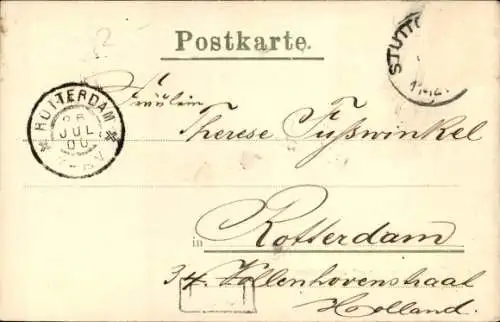 2
Postkarte.
STUTTG
ROTTERDAM
26
JUL
00
Fräulein
Therese Fußwinkel
in Rotterdam
34. Vollenhovenstraat
Holland.